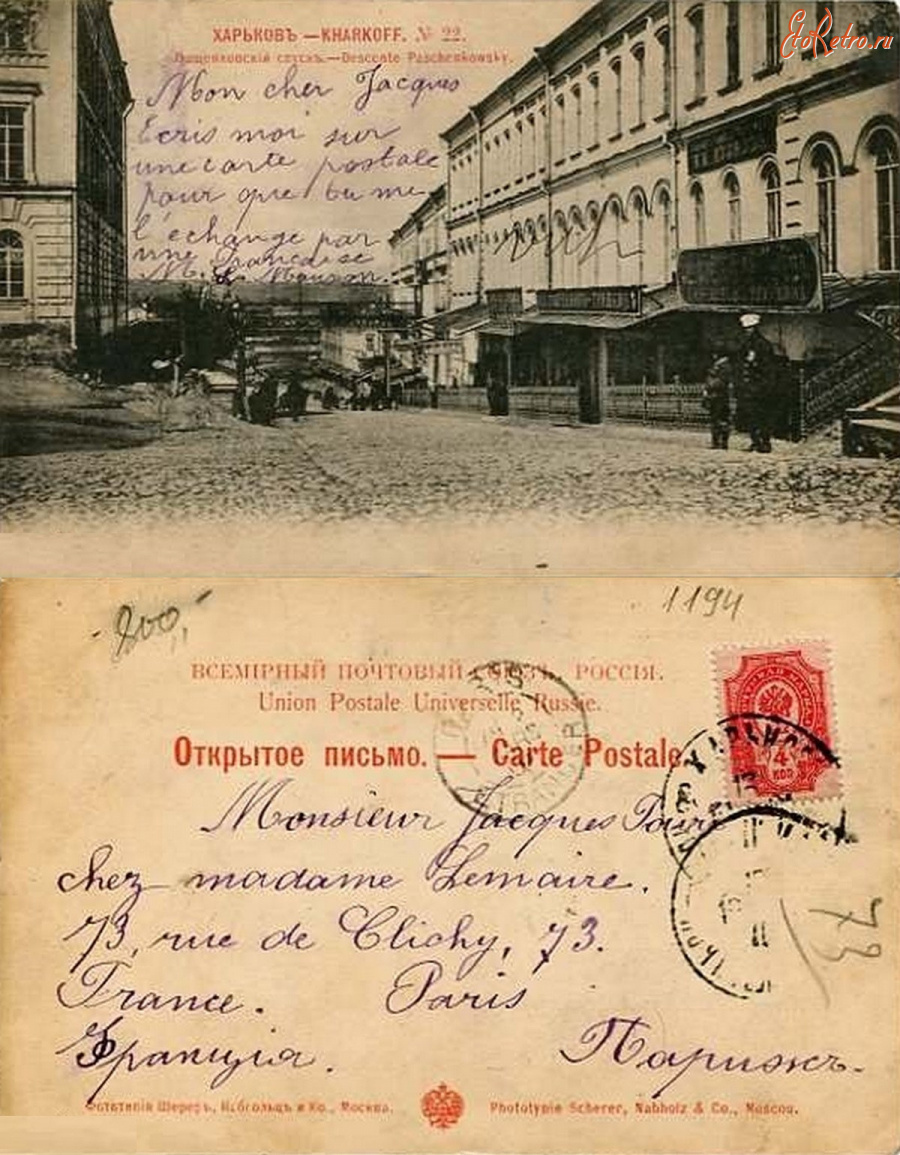 EtoRetro.ru
ХАРЬКОВЪ — KHARKOFF. № 22.
Пащенковскій спускъ. — Descente Paschenkowsky.
Mon cher Jacques
Ecris moi sur
une carte postale
pour que tu me
l'échange par
une française
800,-
1194
ВСЕМІРНЫЙ ПОЧТОВЫЙ СОЮЗЪ. РОССІЯ.
Union Postale Universelle Russie.
Открытое письмо. — Carte Postale.
4
КОП
ХАРЬКОВ
Monsieur Jacques
chez madame Lemaire.
73, rue de Clichy, 73.
73
France. Paris
Франція. Парижъ.
Фототипія Шереръ, Набгольцъ и Ко., Москва.
Phototypie Scherer, Nabholz & Co., Moscou.